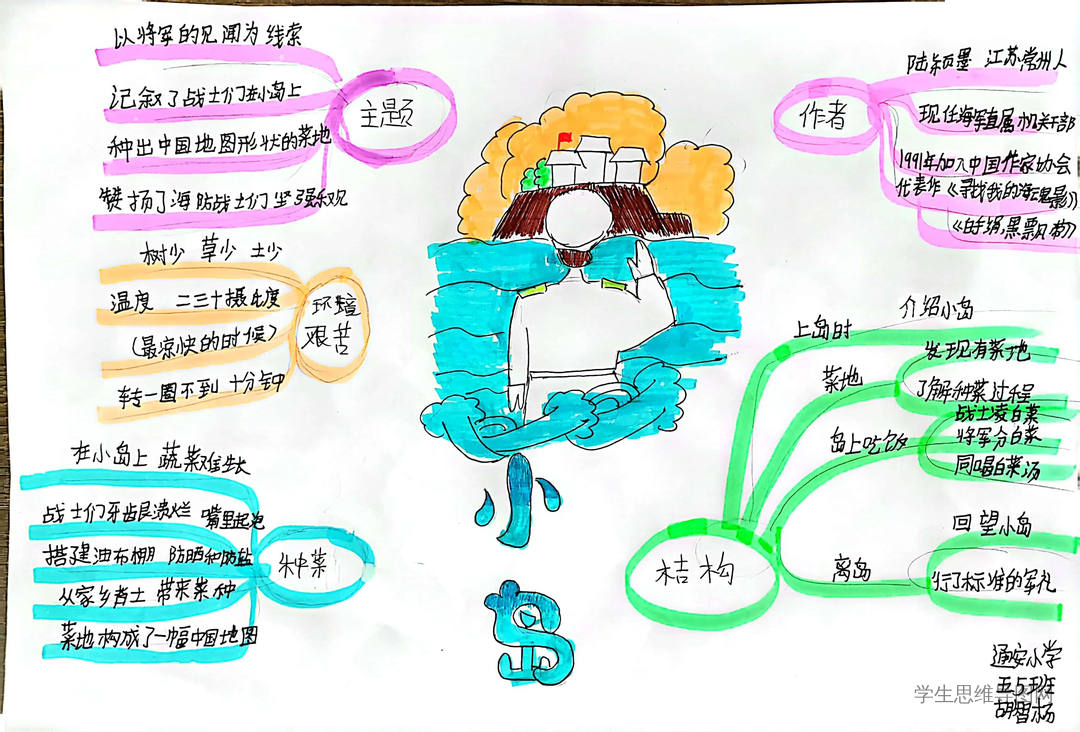 主题
以将军的见闻为线索
记叙了战士们在小岛上
种出中国地图形状的菜地
赞扬了海防战士们坚强乐观
环境
艰苦
树少 草少 土少
温度 二三十摄氏度
(最凉快的时候)
转一圈不到十分钟
种菜
在小岛上 蔬菜难生长
战士们牙龈溃烂 嘴里起泡
搭建油布棚 防晒和防盐
从家乡背土 带来菜种
菜地构成了一幅中国地图
小
岛
作者
陆颖墨 江苏常州人
现任海军直属机关干部
1991年加入中国作家协会
代表作《寻找我的海魂影》
《白手绢,黑飘带》
结构
上岛时
介绍小岛
菜地
发现有菜地
了解种菜过程
岛上吃饭
战士凌白菜
将军分白菜
同喝白菜汤
离岛
回望小岛
行了标准的军礼
通安小学
五5班
胡智杨
学生思维导图网